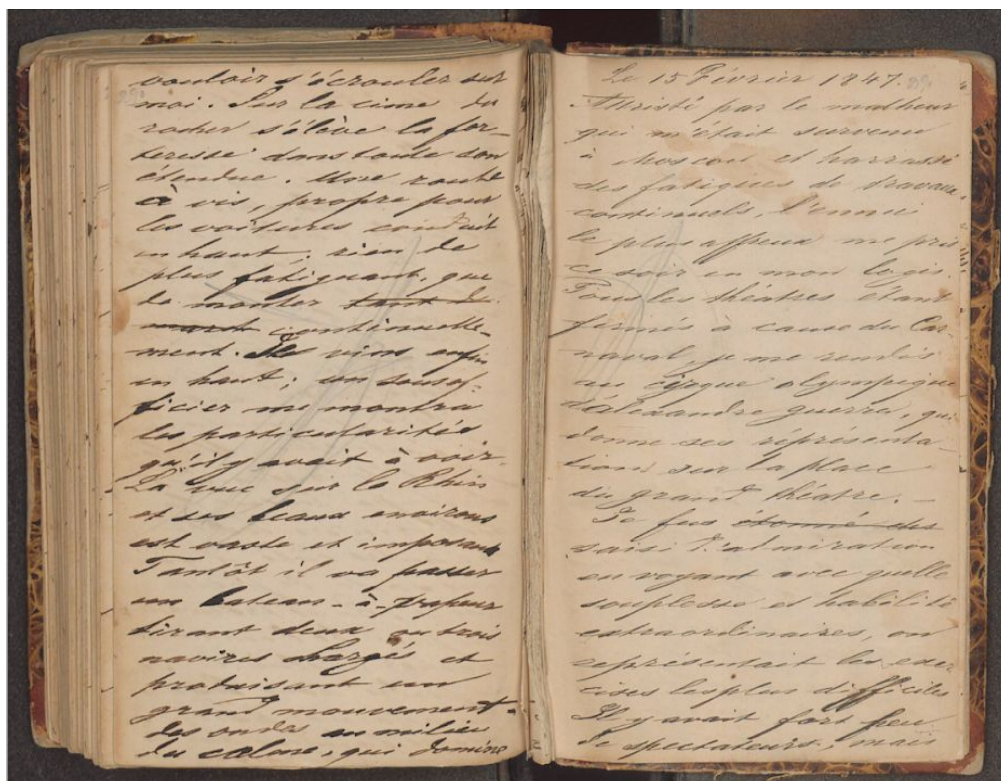 vouloir s'écrouler sur
moi. Sur la cime du
rocher s'élève la for-
teresse dans toute son
étendue. Une route
à vis, propre pour
les voitures conduit
en haut; rien de
plus fatiguant, que
de monter tant de
march continuelle-
ment. Je vins enfin
en haut; un sousof-
ficier me montra
les particularités
qu'il y avait à voir.
La vue sur le Rhin
et ses beaux environs
est vaste et imposante
Tantôt il va passer
un bateau-à-vapeur
tirant deux ou trois
navires chargés et
produisant un
grand mouvement
des ondes au milieu
du calme, qui domine
Le 15 Février 1847.
Attristé par le malheur
qui m'était survenu
à Moscou et harrassé
des fatigues de travaux
continuels, l'ennui
le plus affreux me prit
ce soir en mon logis.
Tous les théatres étant
fermés à cause du Car
naval, je me rendis
au cirque olympique
d'Alexandre Guerre, qui
donne ses représenta
tions sur la place
du grand théatre. —
Je fus étonné des
saisi d'admiration
en voyant avec quelle
souplesse et habilité
extraordinaires, on
représentait les exer
cises les plus difficiles
Il y avait fort peu
de spectateurs, mais